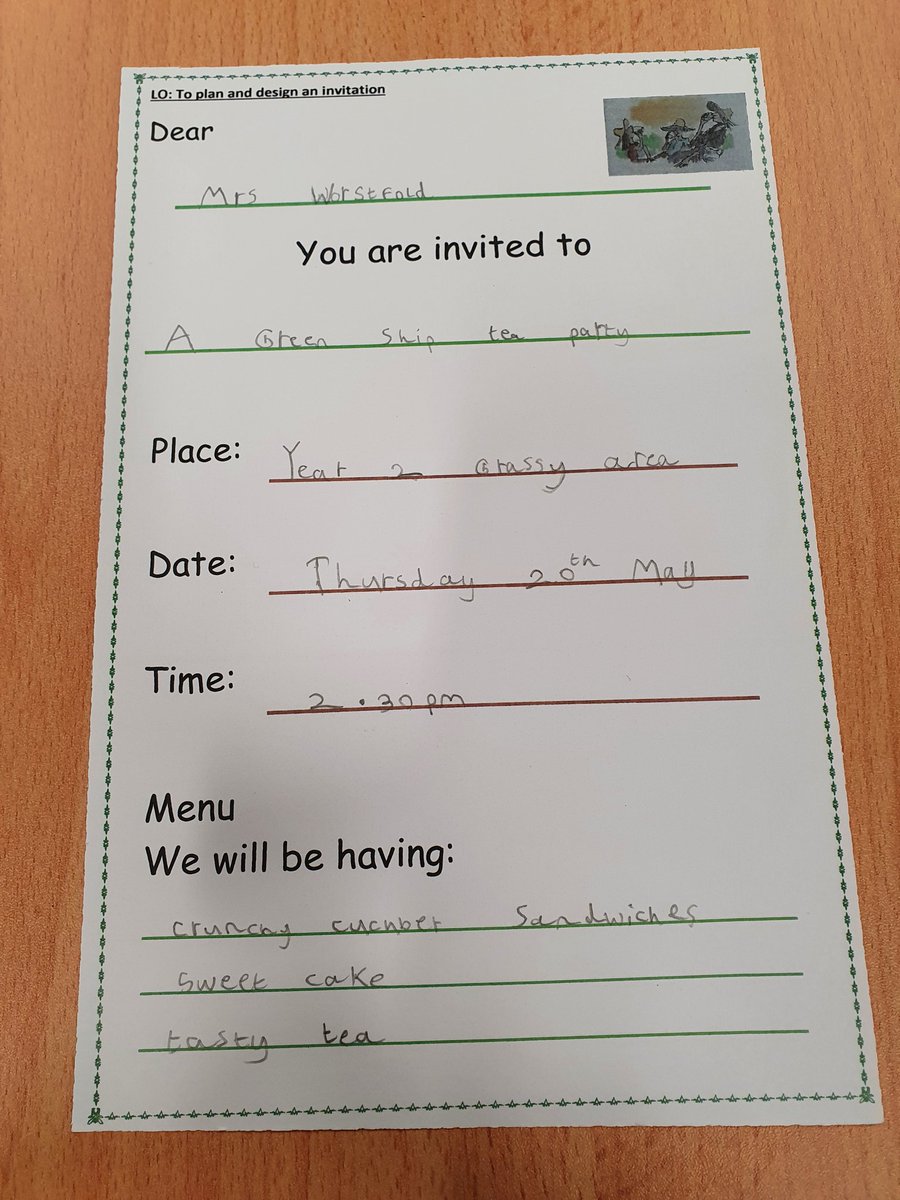 LO: To plan and design an invitation
Dear
Mrs Worstfold
You are invited to
A Green Ship tea party
Place: Year 2 Grassy area
Date: Thursday 20th May
Time: 2.30pm
Menu
We will be having:
crunchy cucnber Sandwiches
Sweet cake
tasty tea